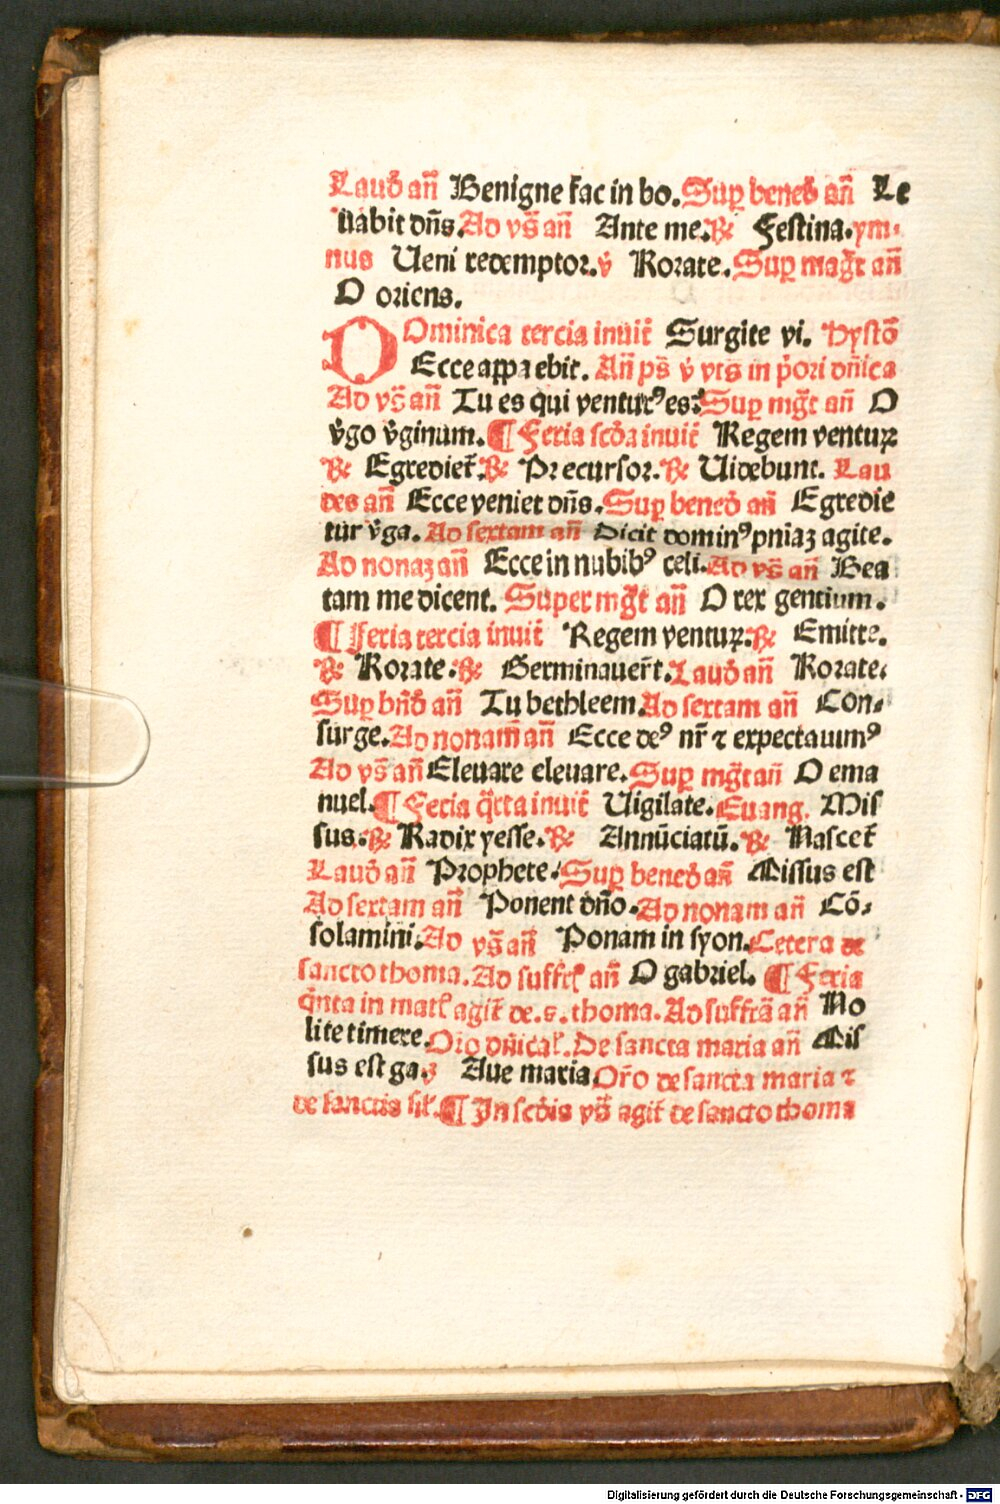 Laud̄ añ Benigne fac in bo. Suꝑ bened̄ añ Le
uabit dñs. Ad vs̄ añ Ante me. ℞ Festina. ym-
nus Ueni redemptor. v̄ Rorate. Suꝑ mag̃t añ
O oriens.
DOminica tercia inuit̄ Surgite vi. Hystō
Ecce apparebit. Añ ps̄ v̄ vts̄ in p̄ori dñica
Ad vs̄ añ Tu es qui ventur⁹ es: Suꝑ mg̃t añ O
v̄go v̄ginum. ¶ Feria scd̄a inuit̄ Regem ventuꝝ
℞ Egrediet̄. ℞ Precursor. ℞ Uidebunt. Lau
des añ Ecce veniet dñs. Suꝑ bened̄ añ Egredie
tur v̄ga. Ad sextam añ Dicit domin⁹ pniaꝫ agite.
Ad nonaꝫ añ Ecce in nubib⁹ celi. Ad vs̄ añ Bea
tam me dicent. Super mg̃t añ O rex gentium.
¶ Feria tercia inuit̄ Regem ventuꝝ. ℞ Emitte.
℞ Rorate. ℞ Germinauer̄t. Laud̄ añ Rorate.
Suꝑ bñd̄ añ Tu bethleem. Ad sextam añ Con-
surge. Ad nonam̄ añ Ecce de⁹ nr̄ ⁊ expectauim⁹
Ad vs̄ añ Eleuare eleuare. Suꝑ mg̃t añ O ema
nuel. ¶ Feria q̄rta inuit̄ Uigilate. Euang. Mis
sus. ℞ Radix yesse. ℞ Annūciatū. ℞ Nascet̄
Laud̄ añ Prophete. Suꝑ bened̄ añ Missus est
Ad sextam añ Ponent dño. Ad nonam añ Cō-
solamini. Ad vs̄ añ Ponam in syon. Cetera de
sancto thoma. Ad suffrꝭ añ O gabriel. ¶ Feria
q̄nta in matꝭ agit̄ de. s. thoma. Ad suffrā añ No
lite timere. Orō dñicalꝭ. De sancta maria añ Mis
sus est ga. ꝫ Aue maria Orō de sancta maria ⁊
de sanctis silꝭ. ¶ In scd̄is vs̄ agit̄ de sancto thoma
Digitalisierung gefördert durch die Deutsche Forschungsgemeinschaft - DFG